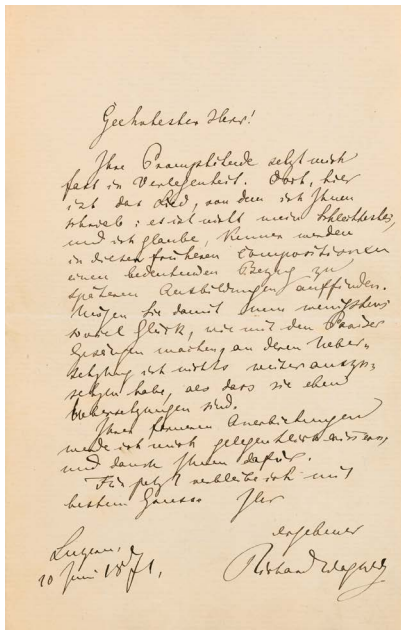 Geehrtester Herr!
Ihre Promptitude setzt mich
fast in Verlegenheit. Doch, hier
ist das Lied, von dem ich Ihnen
schrieb: es ist nicht mein Schlechtestes,
und ich glaube, Kenner werden
in diesen früheren Compositionen
einen bedeutenden Bezug zu
späteren Ausbildungen auffinden.
Mögen Sie damit nun wenigstens
soviel Glück, wie mit den Pariser
Gesängen machen, an deren Ueber-
setzung ich nichts weiter auszu-
setzen habe, als dass sie eben
Uebersetzungen sind.
Ihrer ferneren Anerbietungen
werde ich mich gelegentlich erinnern,
und danke Ihnen dafür.
Für jetzt verbleibe ich mit
bestem Grusse Ihr
ergebener
Luzern,
10 Juni 1871,
Richard Wagner